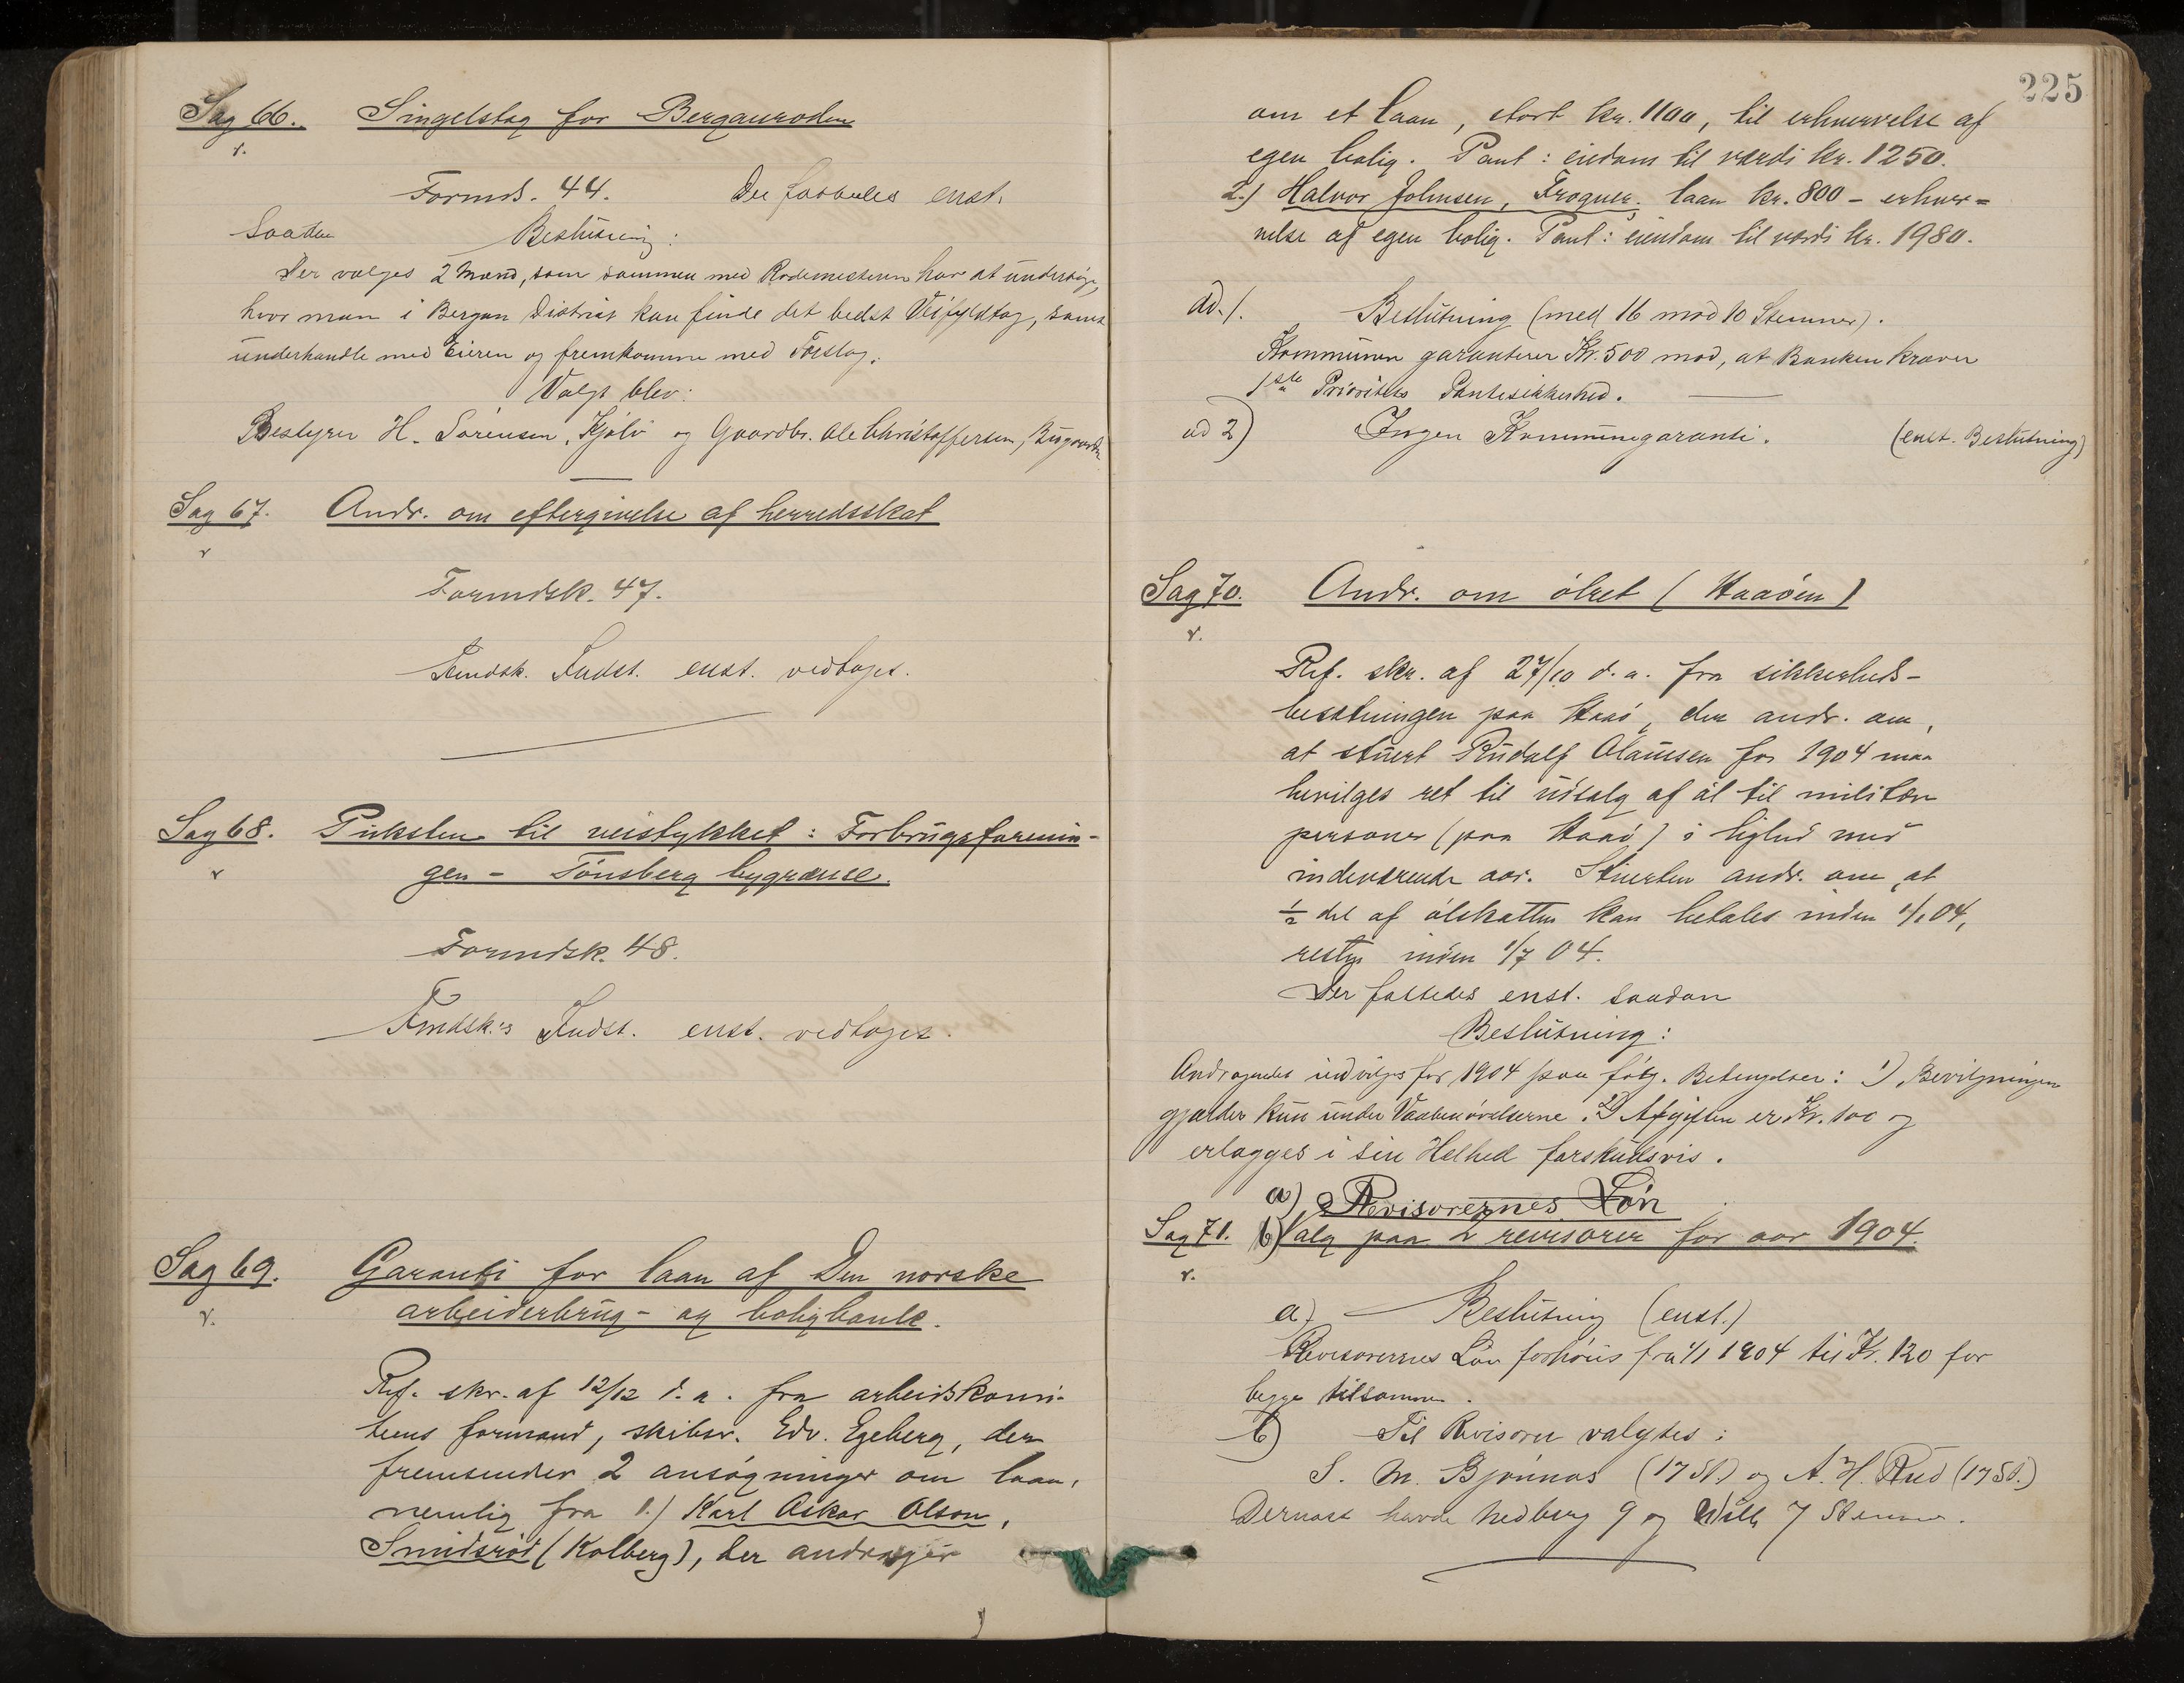 Sag 66. Singelstag for Berganroden
v.
Formds. 44. Der fattedes enst.
Saadan Beslutning:
Der vælges 2 Mænd, som sammen med Rodemesteren har at undersøge,
hvor man i Bergan District kan finde det bedst Veifyldtag, samt
underhandle med Eieren og fremkomme med Forslag.
Valgt blev:
Bestyrer H. Sørensen, Kjølø og Gaardbr. Ole Christoffersen,
Sag 67. Andr. om eftergivelse af herredsskat
v
Formdsk. 47.
Fmdsk. Indst. enst. vedtoges.
Sag 68. Puksten til veistykket: Forbrugsforenin-
v gen - Tønsberg bygrænse.
Formdsk. 48.
Fmdsk.'s Indst. enst. vedtoges.
Sag 69. Garanti for laan af Den norske
v. arbeiderbrug- og boligbank.
Ref. skr. af 12/12 d. a. fra arbeidskomi-
teens formand, skibsr. Edv. Egeberg, der
fremsender 2 ansøgninger om laan,
nemlig fra 1.) Karl Oskar Olson,
Smidsrød (Kolberg), der andrager
225
om et laan, stort kr. 1100, til erhvervelse af
egen bolig. Pant: eiendom til værdi kr. 1250.
2.) Halvor Johnsen, Frogner. laan kr. 800 - erhver=
velse af egen bolig. Pant: eiendom til værdi kr. 1980.
ad. 1. Beslutning (med 16 mod 10 Stemmer).
Kommunen garanterer Kr. 500 mod, at Banken kræver
1ste Prioritets Pantesikkerhed.
ad 2) Ingen Kommunegaranti. (enst. Beslutning)
Sag 70. Andr. om ølret (Haaøen)
v.
Ref. skr. af 27/10 d. a. fra sikkerheds-
besætningen paa Haaø, der andr. om,
at stuert Rudolf Olaussen for 1904 maa
bevilges ret til udsalg af øl til militære
personer (paa Haaø) i lighed med
indeværende aar. Stuerten andr. om, at
1/2 del af ølskatten kan betales inden 1/1 04,
resten inden 1/7 04.
Der fattedes enst. saadan
Beslutning:
Andragendet indvilges for 1904 paa følg. Betingelser: 1) Bevilgningen
gjælder kun under Vaabenøvelserne. 2) Afgiften er Kr. 100 og
erlægges i sin Helhed forskudsvis.
a) Revisorernes Løn
Sag 71. b) Valg paa 2 revisorer for aar 1904.
v.
a) Beslutning (enst.)
Revisorernes Løn forhøies fra 1/1 1904 til Kr. 120 for
begge tilsammen.
b) Til Revisorer valgtes:
S. M. Bjønnes (17 St.) og A. H. Rud (17 St.)
Dernæst havde Hedberg 9 og 7 Stemmer.